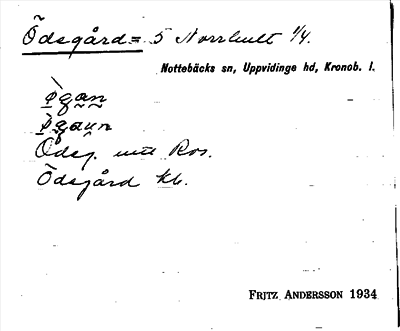 Ödsgård = 5 Norrhult 1/4.
Nottebäcks sn, Uppvidinge hd, Kronob. l.
Ödsg. mtl Ros.
Ödsgård kb.
FRITZ ANDERSSON 1934